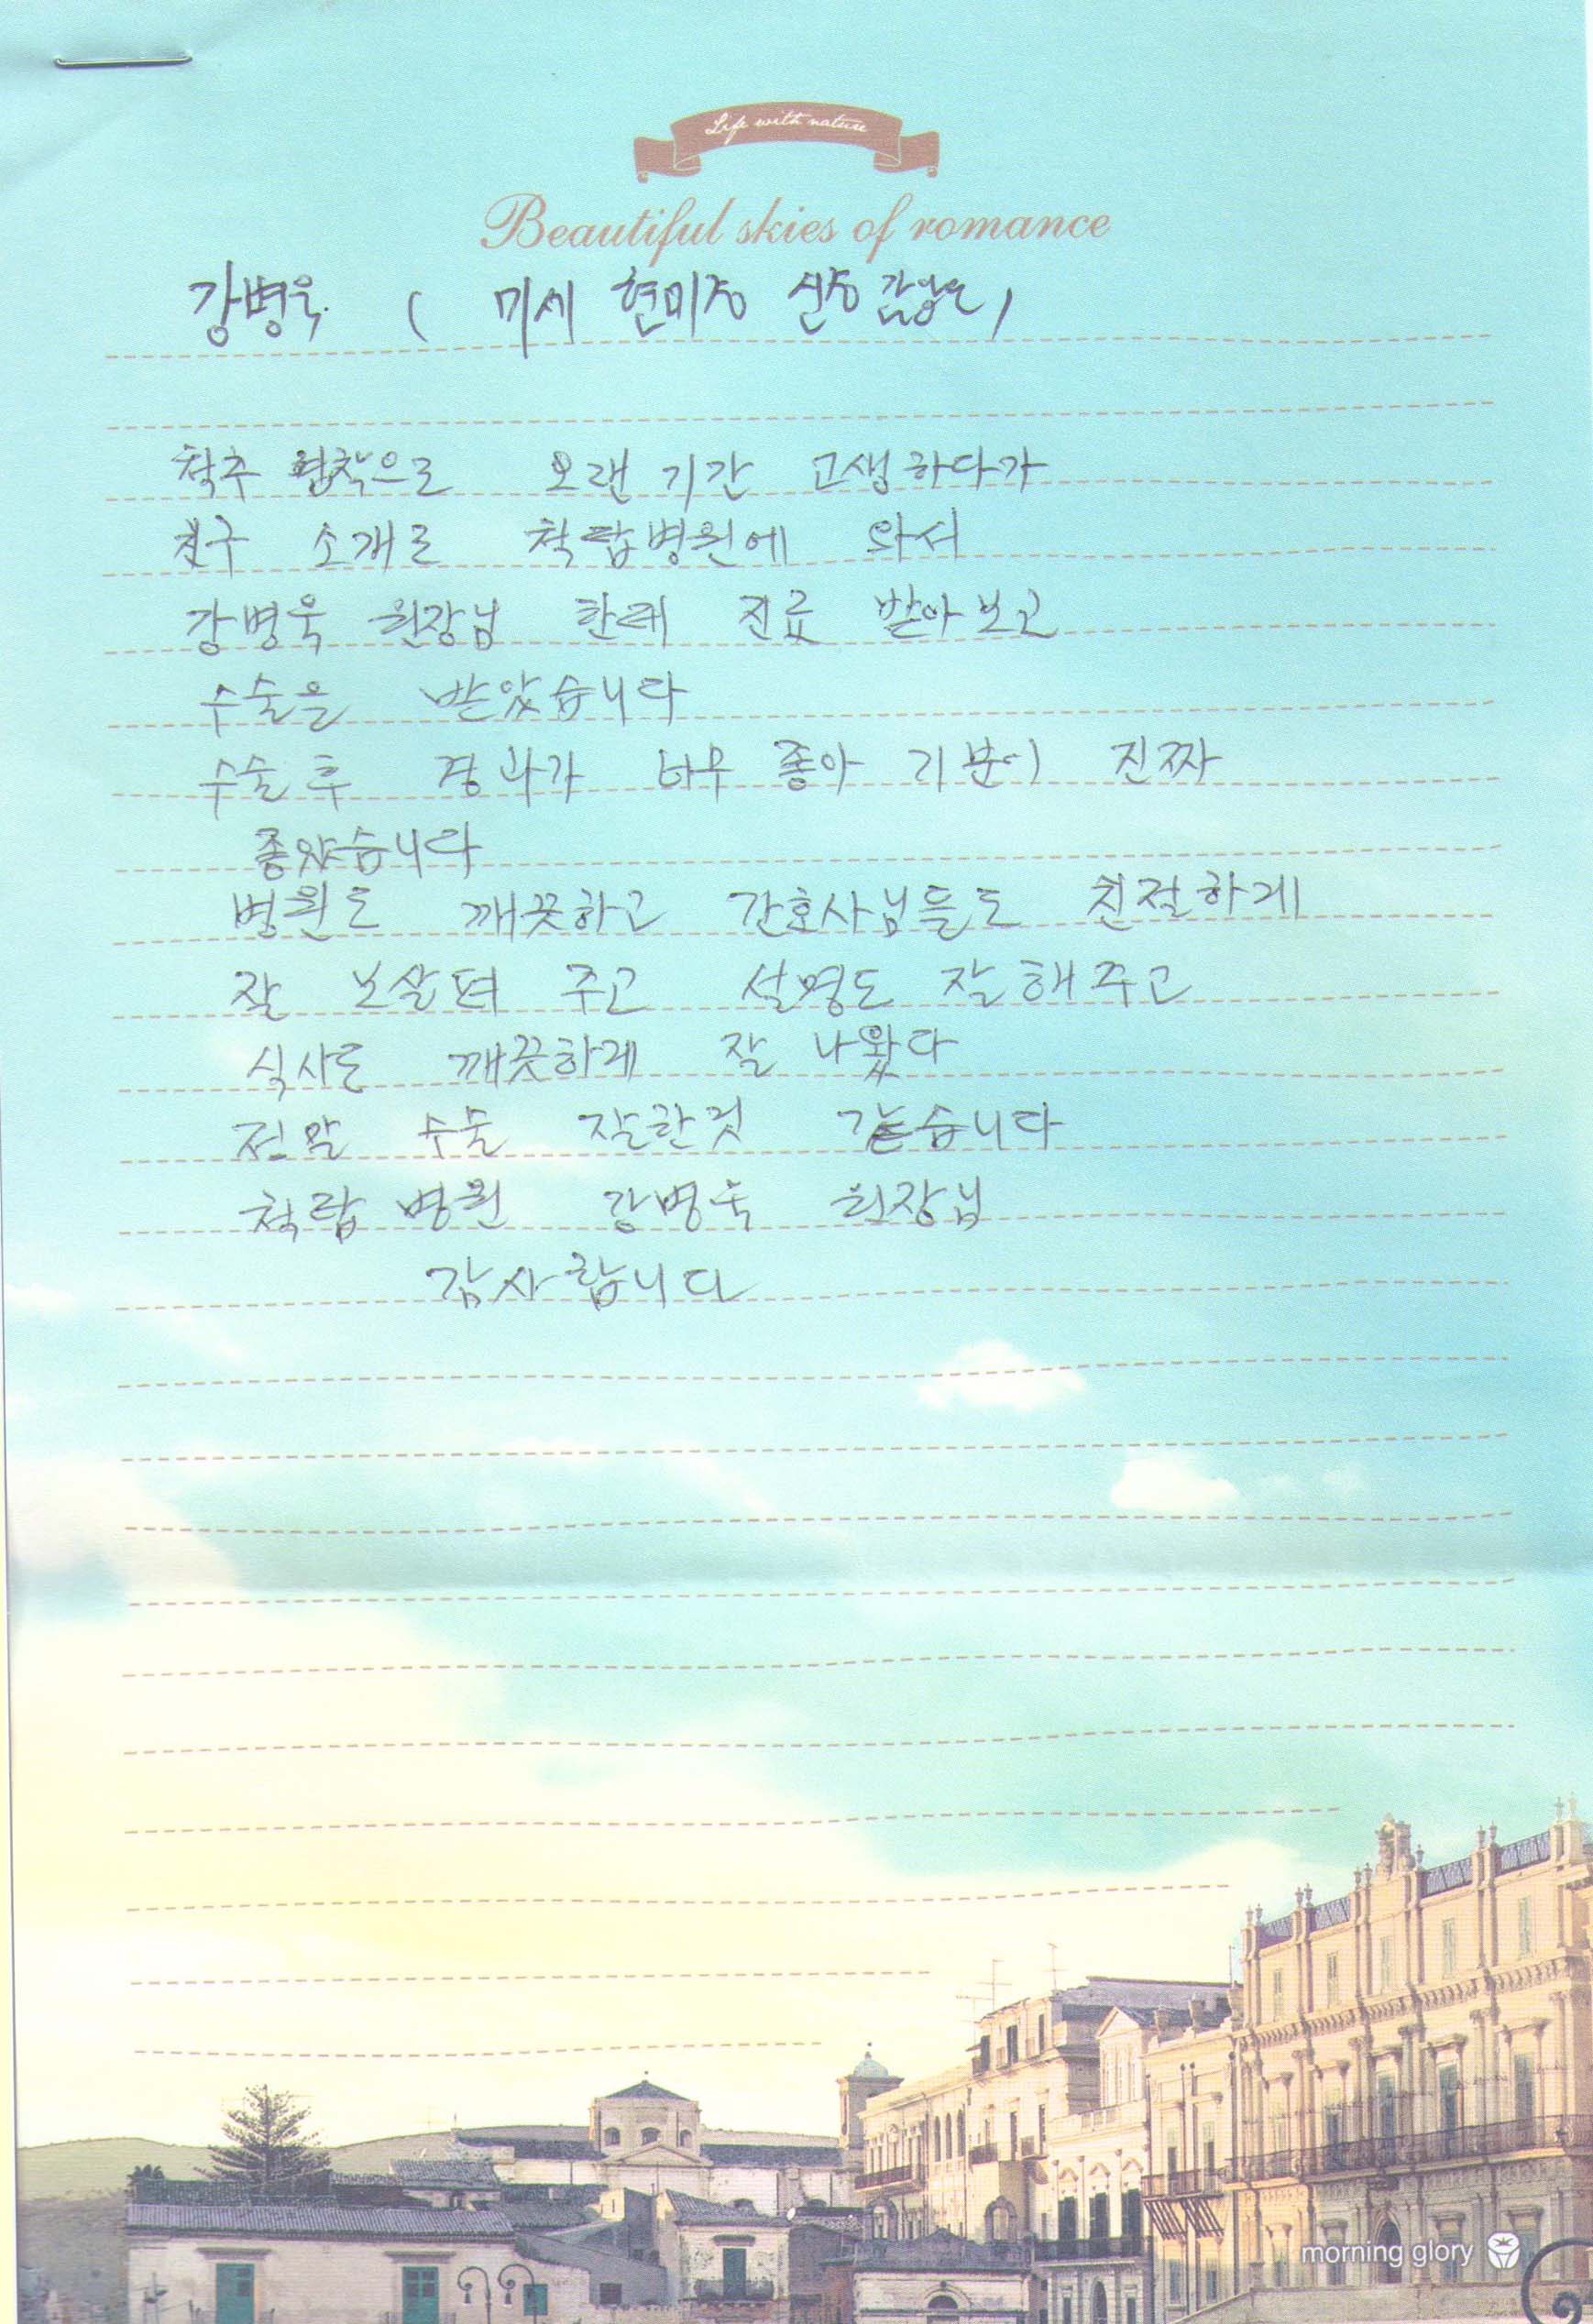 Life with nature
Beautiful skies of romance
강병욱 ( 미세 현미경 신경감압술 )
척추 협착으로 오랜 기간 고생하다가
친구 소개로 척탑병원에 와서
강병욱 원장님 한테 진료 받아보고
수술을 받았습니다
수술후 경과가 너무 좋아 기분이 진짜
좋았습니다
병원도 깨끗하고 간호사님들도 친절하게
잘 보살펴 주고 설명도 잘해주고
식사도 깨끗하게 잘 나왔다
정말 수술 잘한것 같습니다
척탑 병원 강병욱 원장님
감사합니다
morning glory